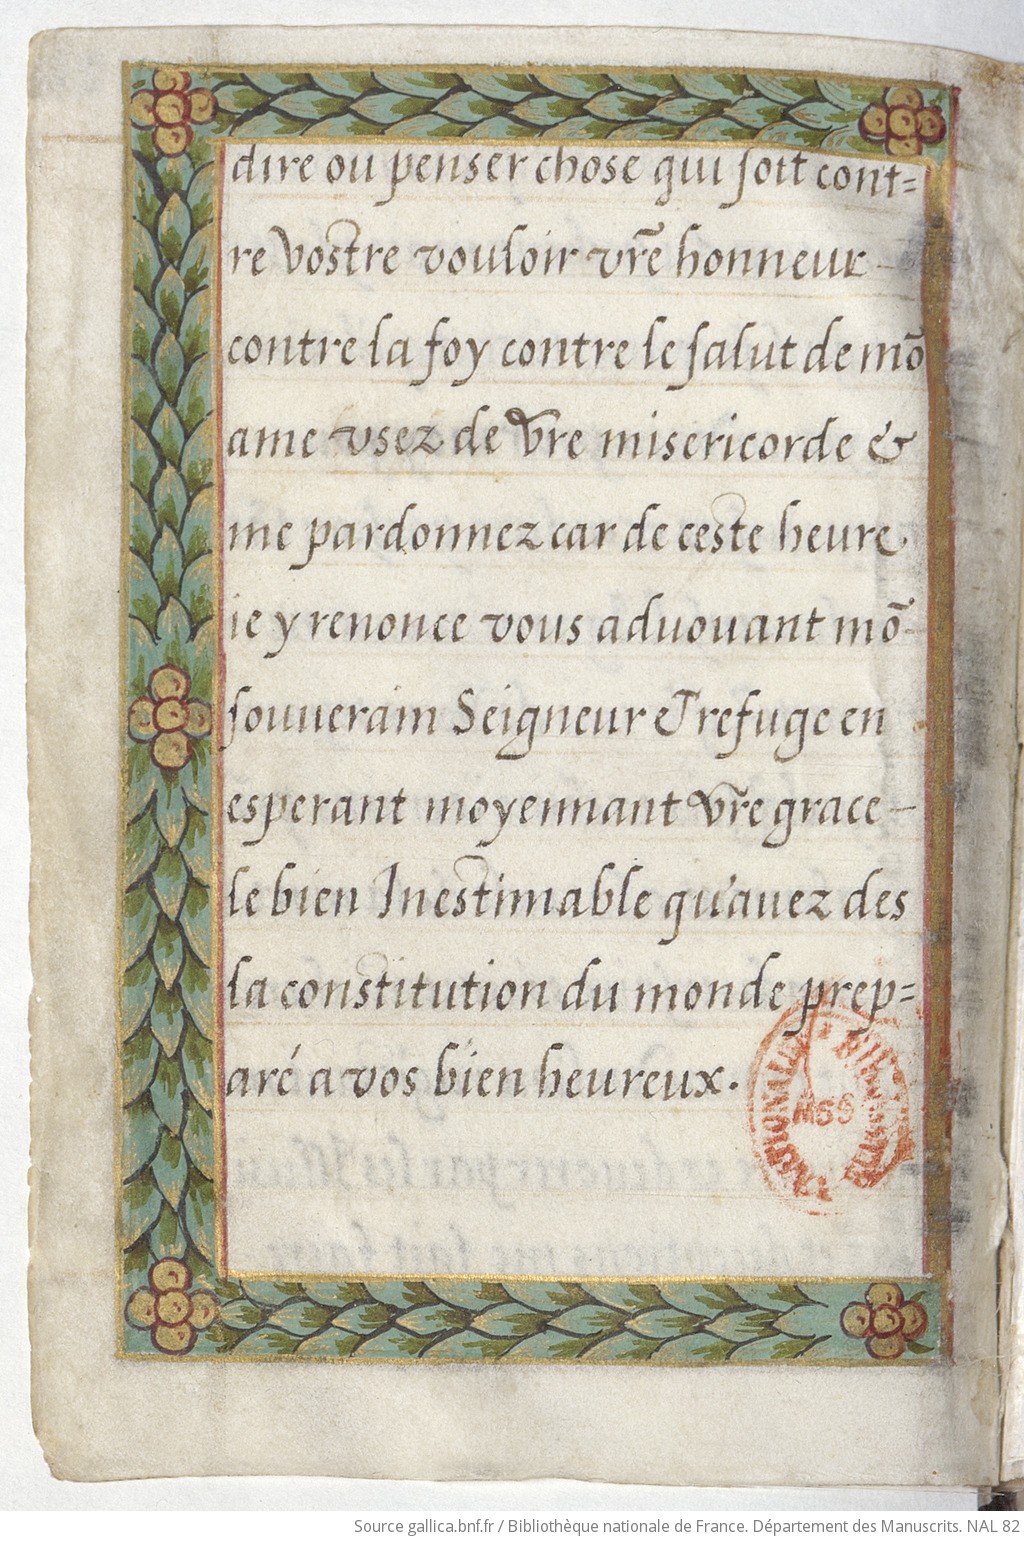 dire ou penser chose qui soit cont=
re vostre vouloir vr̃e honneur -
contre la foy contre le salut de mõ
ame vsez de vr̃e misericorde &
me pardonnez car de ceste heure.
ie y renonce vous aduouant mõ
souuerain Seigneur & refuge en
esperant moyennant vr̃e grace -
le bien Inestimable qu'auez des
la constitution du monde prep=
aré a vos bien heureux.
MSS
Source gallica.bnf.fr / Bibliothèque nationale de France. Département des Manuscrits. NAL 82